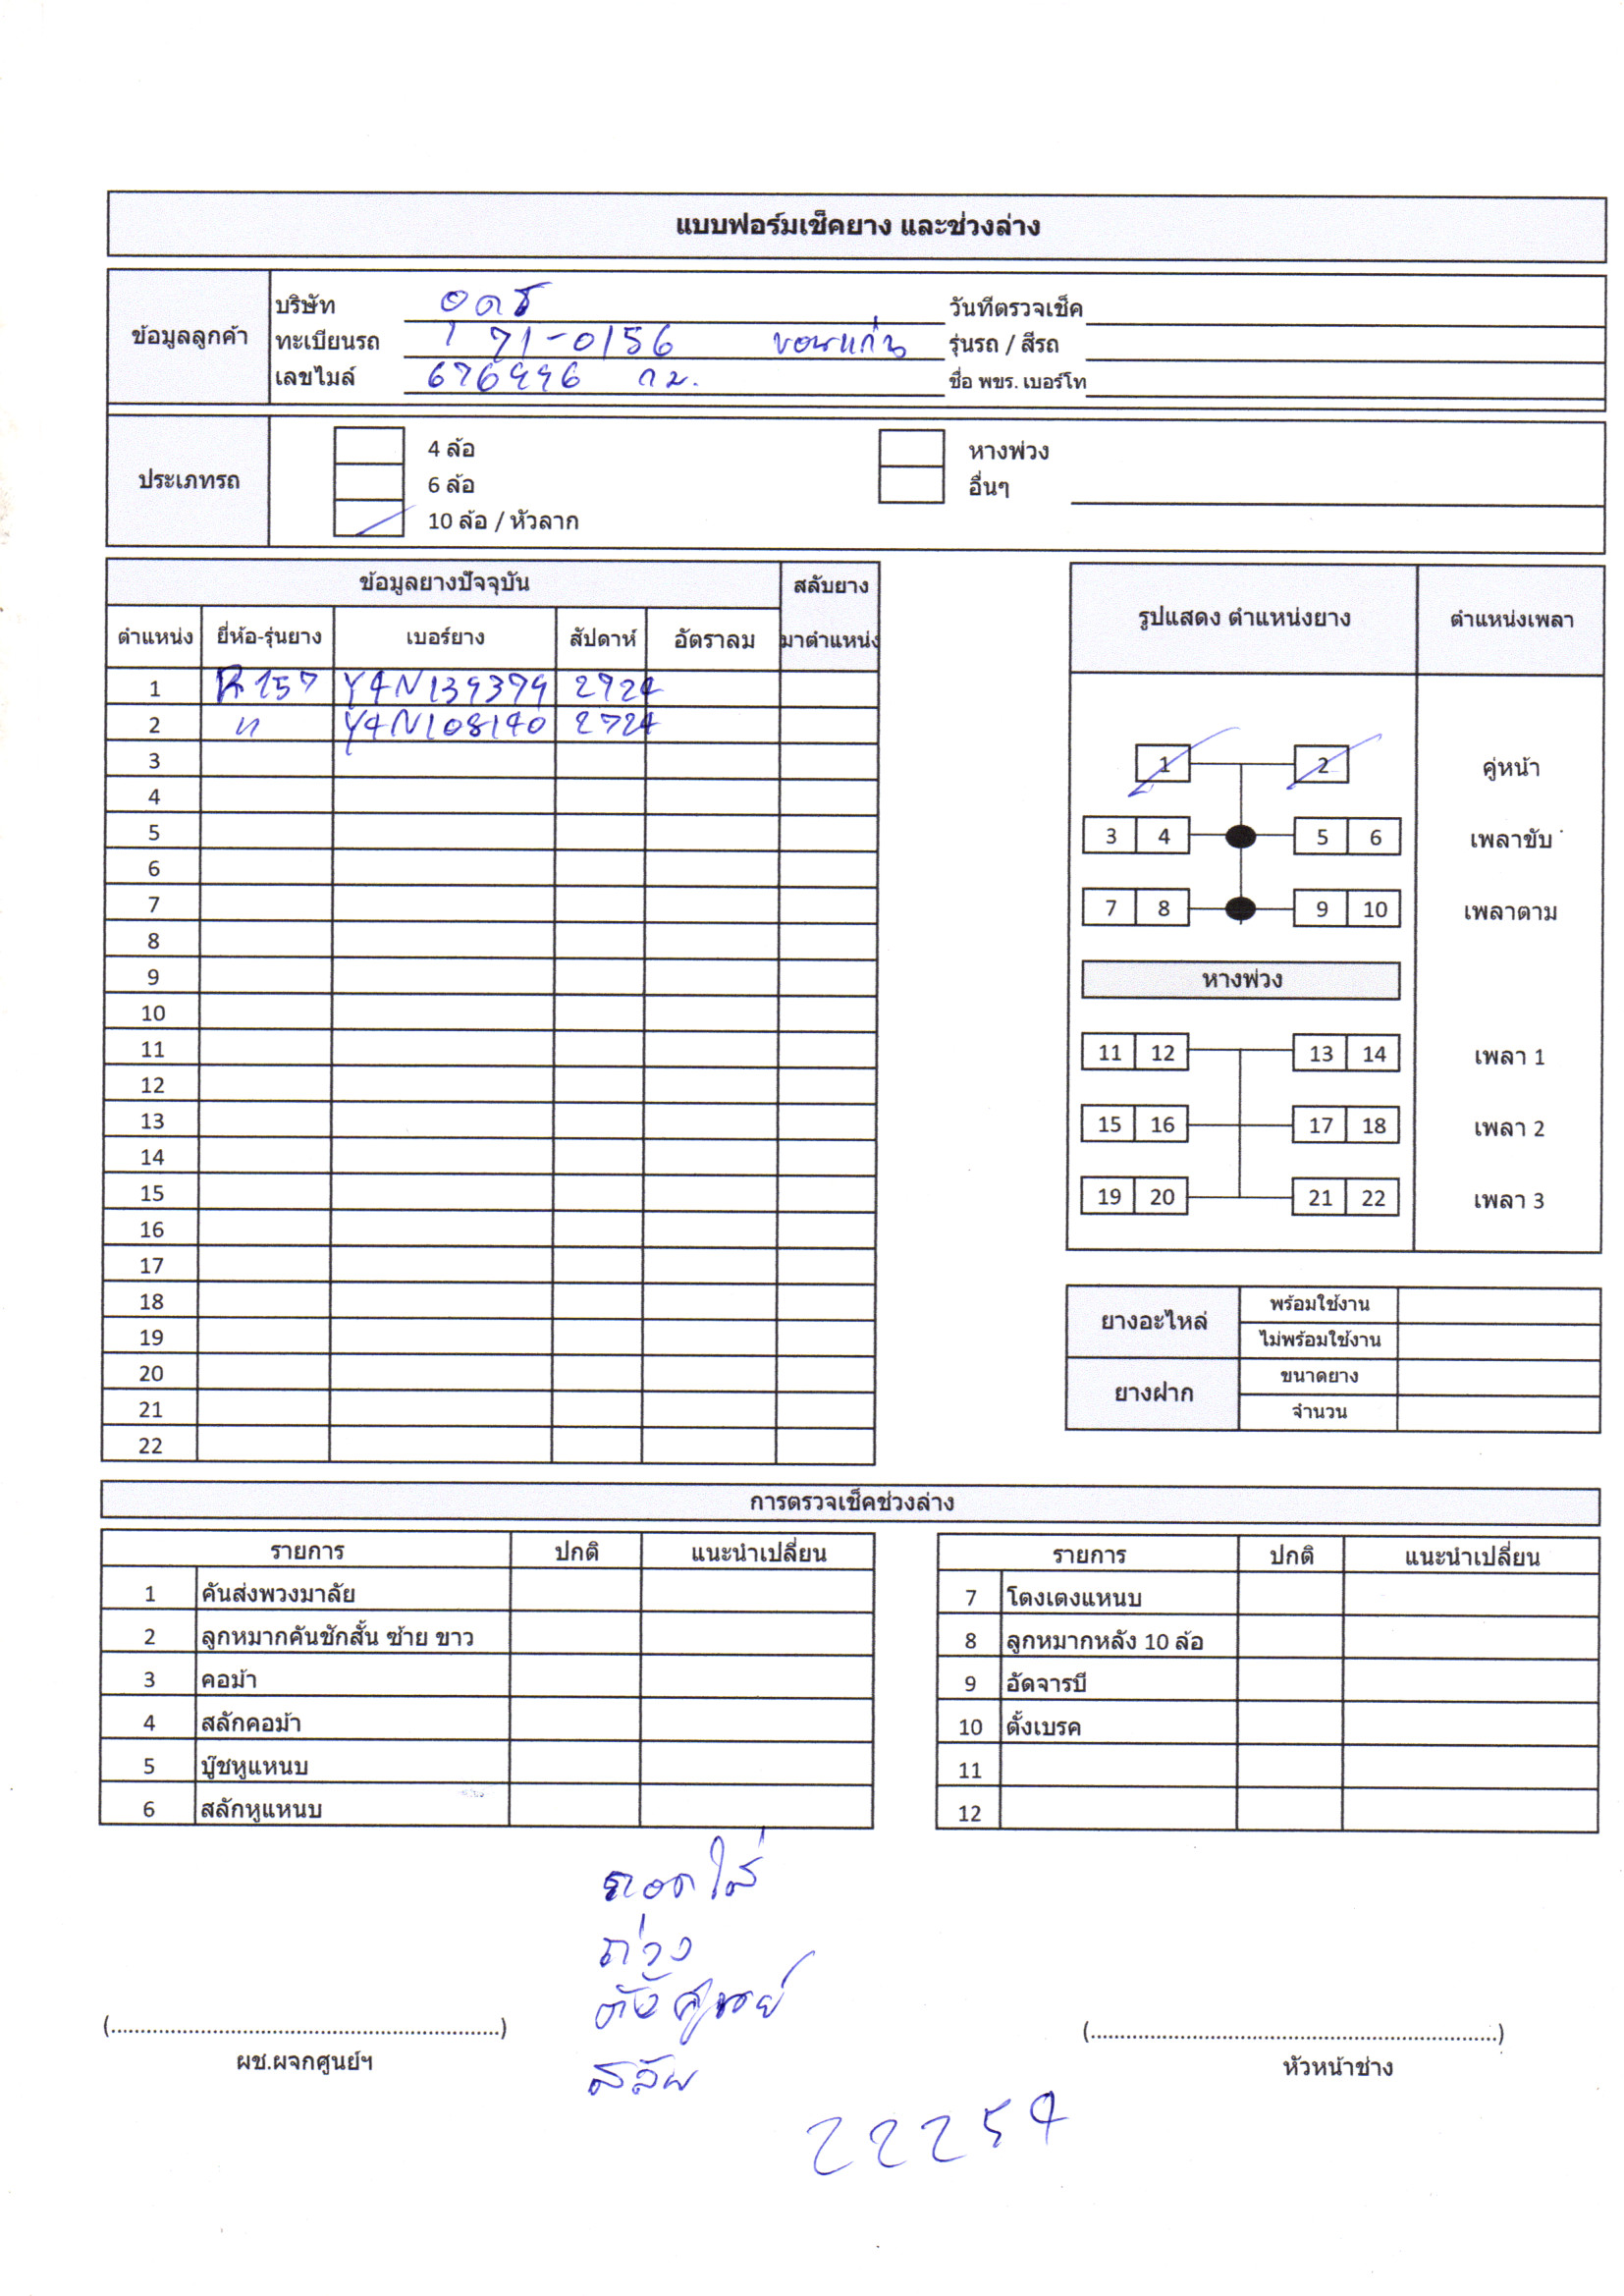 แบบฟอร์มเช็คยาง และช่วงล่าง
ข้อมูลลูกค้า
บริษัท
วันที่ตรวจเช็ค
ทะเบียนรถ 71-0156 ขอนแก่น
รุ่นรถ / สีรถ
เลขไมล์ 676996 กม.
ชื่อ พขร. เบอร์โท
ประเภทรถ
4 ล้อ
6 ล้อ
10 ล้อ / หัวลาก
หางพ่วง
อื่นๆ
ข้อมูลยางปัจจุบัน
สลับยาง
มาตำแหน่ง
ตำแหน่ง ยี่ห้อ-รุ่นยาง เบอร์ยาง สัปดาห์ อัตราลม
1 R157 Y4N139379 2724
2 " Y4N108140 2724
3
4
5
6
7
8
9
10
11
12
13
14
15
16
17
18
19
20
21
22
รูปแสดง ตำแหน่งยาง ตำแหน่งเพลา
1 2 คู่หน้า
3 4 5 6 เพลาขับ
7 8 9 10 เพลาตาม
หางพ่วง
11 12 13 14 เพลา 1
15 16 17 18 เพลา 2
19 20 21 22 เพลา 3
ยางอะไหล่
พร้อมใช้งาน
ไม่พร้อมใช้งาน
ยางฝาก
ขนาดยาง
จำนวน
การตรวจเช็คช่วงล่าง
รายการ ปกติ แนะนำเปลี่ยน
1 คันส่งพวงมาลัย
2 ลูกหมากคันชักสั้น ซ้าย ขาว
3 คอม้า
4 สลักคอม้า
5 บู๊ชหูแหนบ
6 สลักหูแหนบ
รายการ ปกติ แนะนำเปลี่ยน
7 โตงเตงแหนบ
8 ลูกหมากหลัง 10 ล้อ
9 อัดจารบี
10 ตั้งเบรค
11
12
ถอดใส่
ถ่วง
ตั้งศูนย์
สลับ
22254
(................................................................)
ผช.ผจกศูนย์ฯ
(................................................................)
หัวหน้าช่าง